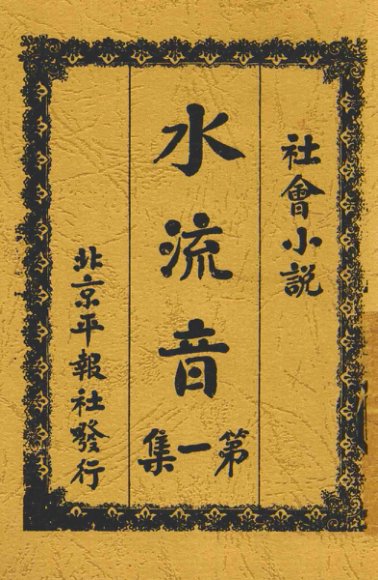 社會小説
水流音
第一集
北京平報社發行